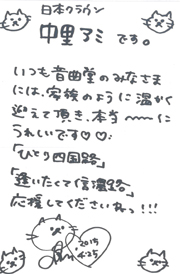 日本クラウン
中里アミ です。
いつも音曲堂のみなさま
には、家族のように温かく
迎えて頂き、本当〜〜に
うれしいです♡♡
「ひとり四国路」
「逢いたくて信濃路」
応援してくださいねっ!!!
2015
4.25